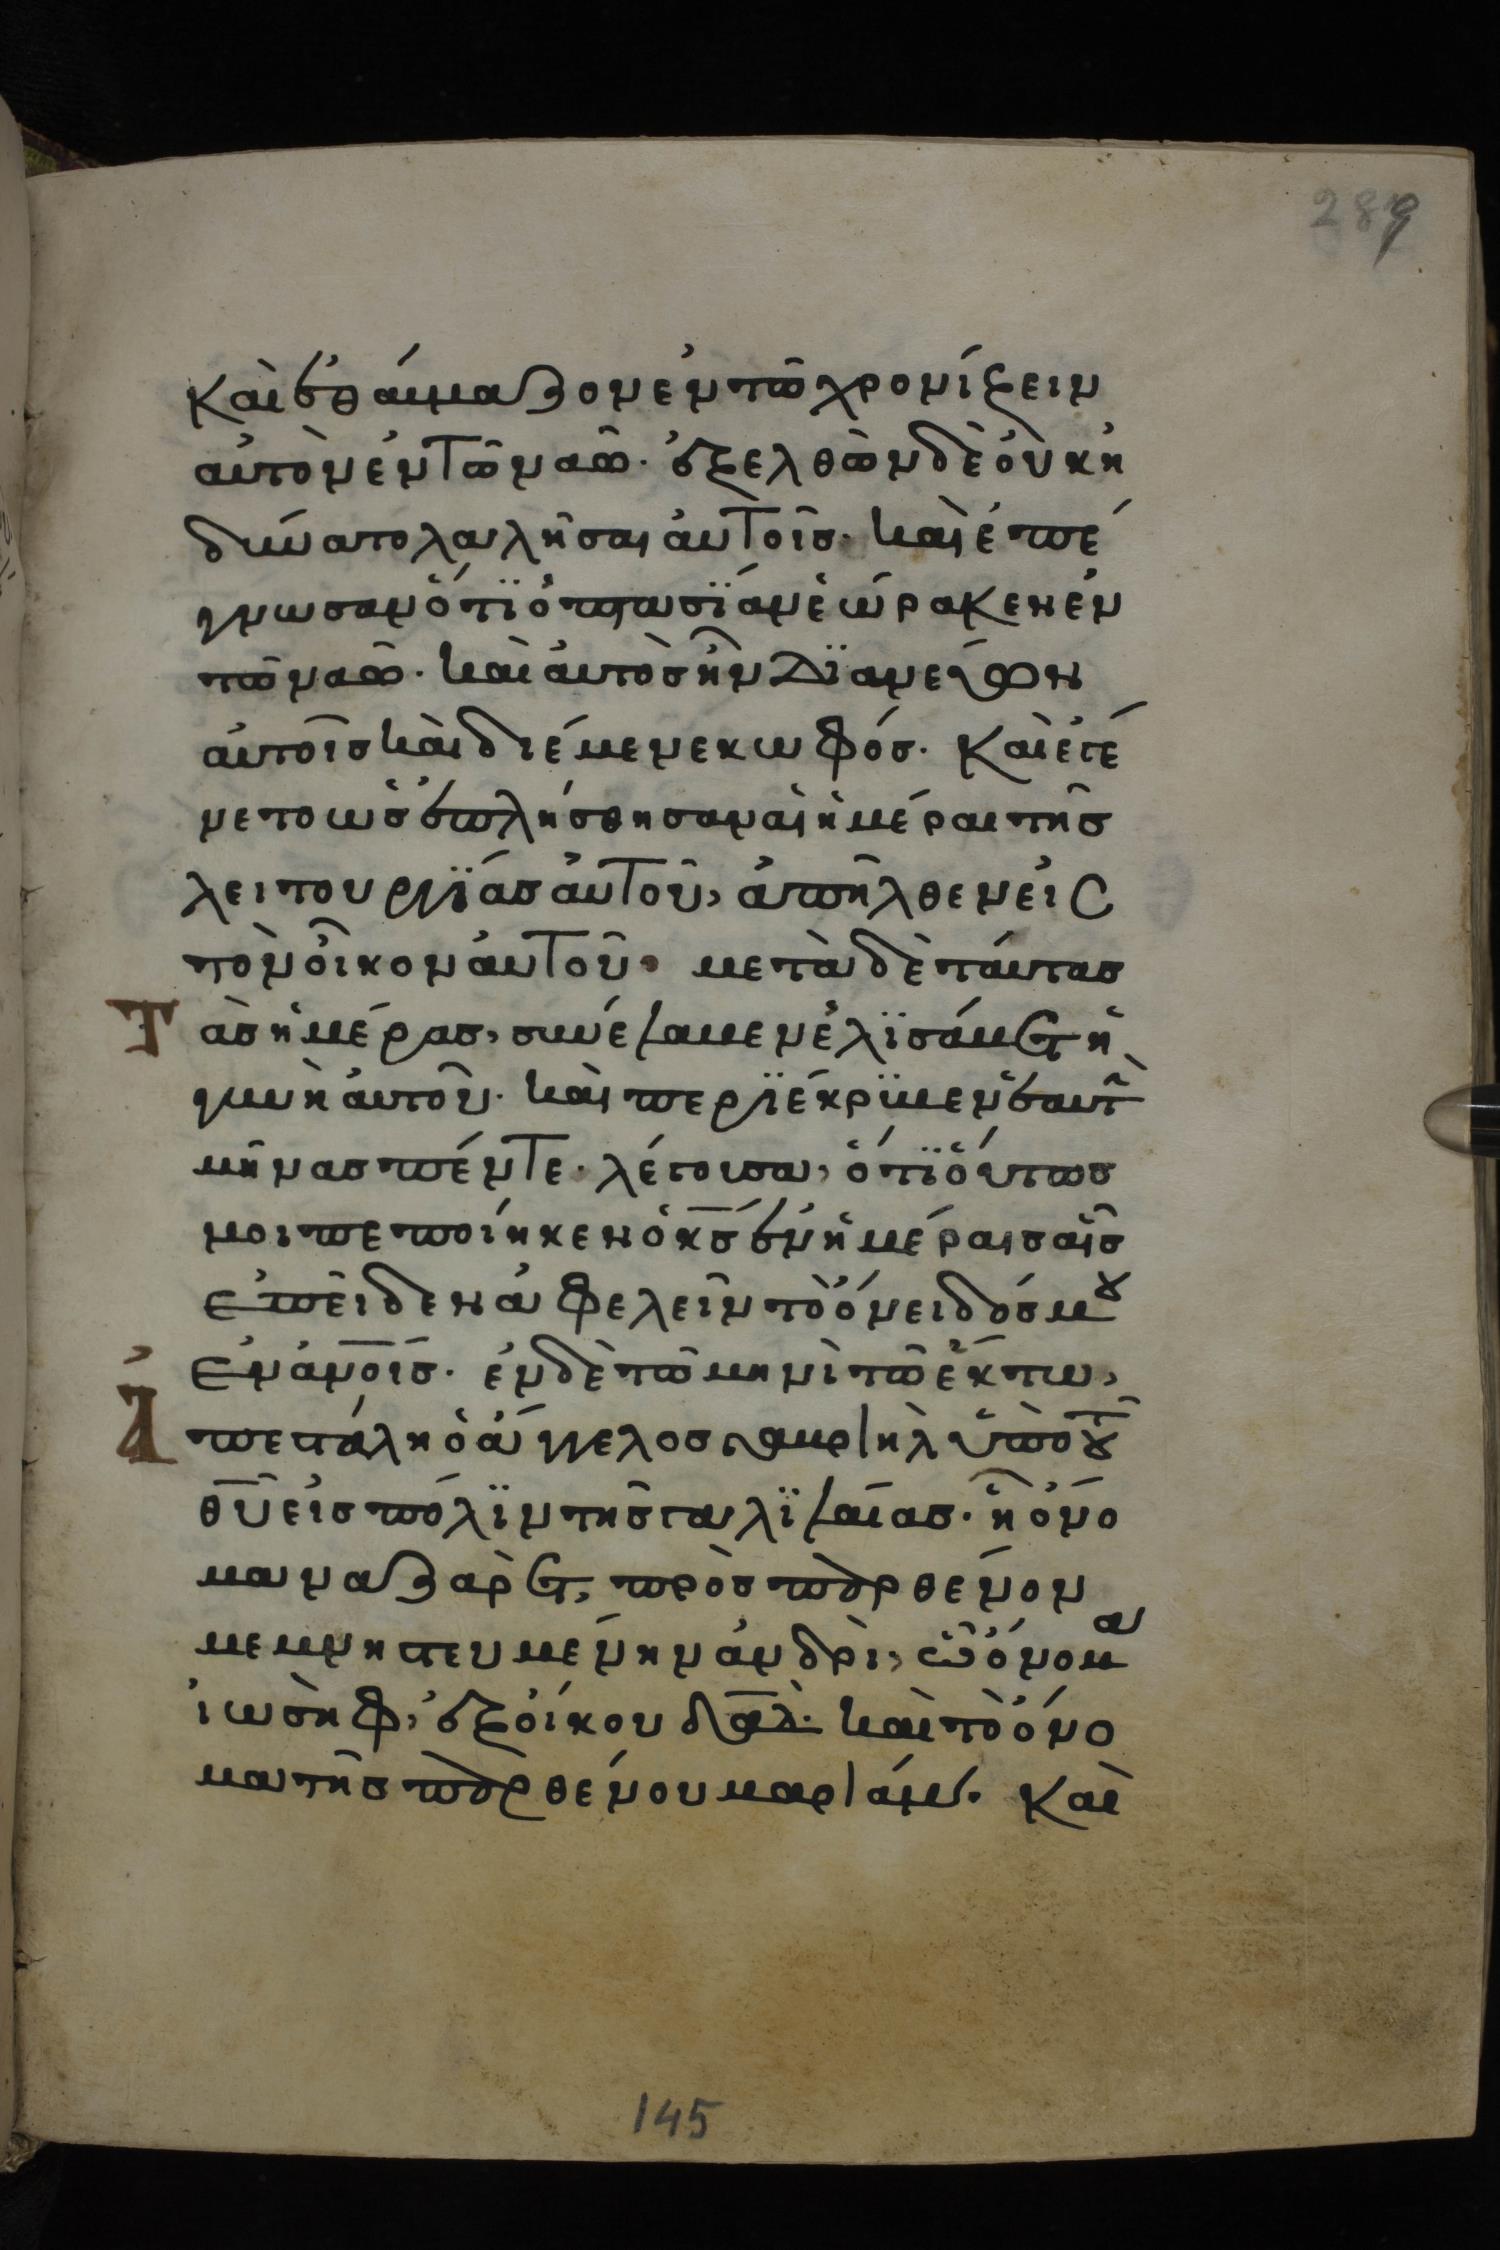 289
καὶ ἐθάυμαζον ἐν τῶ χρονίζειν
ἀυτὸν ἐν τῶ ναῶ· ἐξελθὼν δὲ ὀυκ ἠ
δύνατο λαλῆσαι ἀυτοῖς· καὶ ἐπέ
γνωσαν ὅτϊ ὀπτασΐαν ἑώρακεν ἐν
τῶ ναῶ· καὶ ἀυτὸς ἦν δϊανεύων
ἀυτοῖς καὶ διέμενε κωφός· Καὶ ἐγέ
νετο ὡς ἐπλήσθησαν αἱ ἡμέραι τῆς
λειτουργΐας ἀυτοῦ, ἀπῆλθεν εἰς
τὸν οἶκον ἀυτοῦ· μετὰ δὲ τάυτας
τὰς ἡμέρας, συνέλαβεν ἐλϊσάβετ ἡ
γυνὴ ἀυτοῦ· καὶ περϊέκρϋβεν ἑαυτὴ
μῆνας πέντε· λέγουσα, ὅτϊ ὅυτως
μοι πεποίηκεν ὁ κς ἐν ἡμέραις αἷς
ἐπεῖδεν ἀφελεῖν τὸ ὄνειδός μου
ἐν ἀνοις· ἐν δὲ τῶ μηνὶ τῶ ἕκτω,
ἀπεστάλη ὁ ἄγγελος γαβριὴλ ὑπὸ τοῦ
θυ εἰς πόλϊν τῆς γαλϊλαίας· ἧ ὄνο
μα ναζαρὲτ, πρὸς παρθένον
μεμνηστευμένην ἀνδρὶ, ὧ ὄνομα
ἰωσὴφ, ἐξ ὄίκου δαδ· καὶ τὸ ὄνο
μα τῆς παρθένου μαριάμ· Καὶ
145